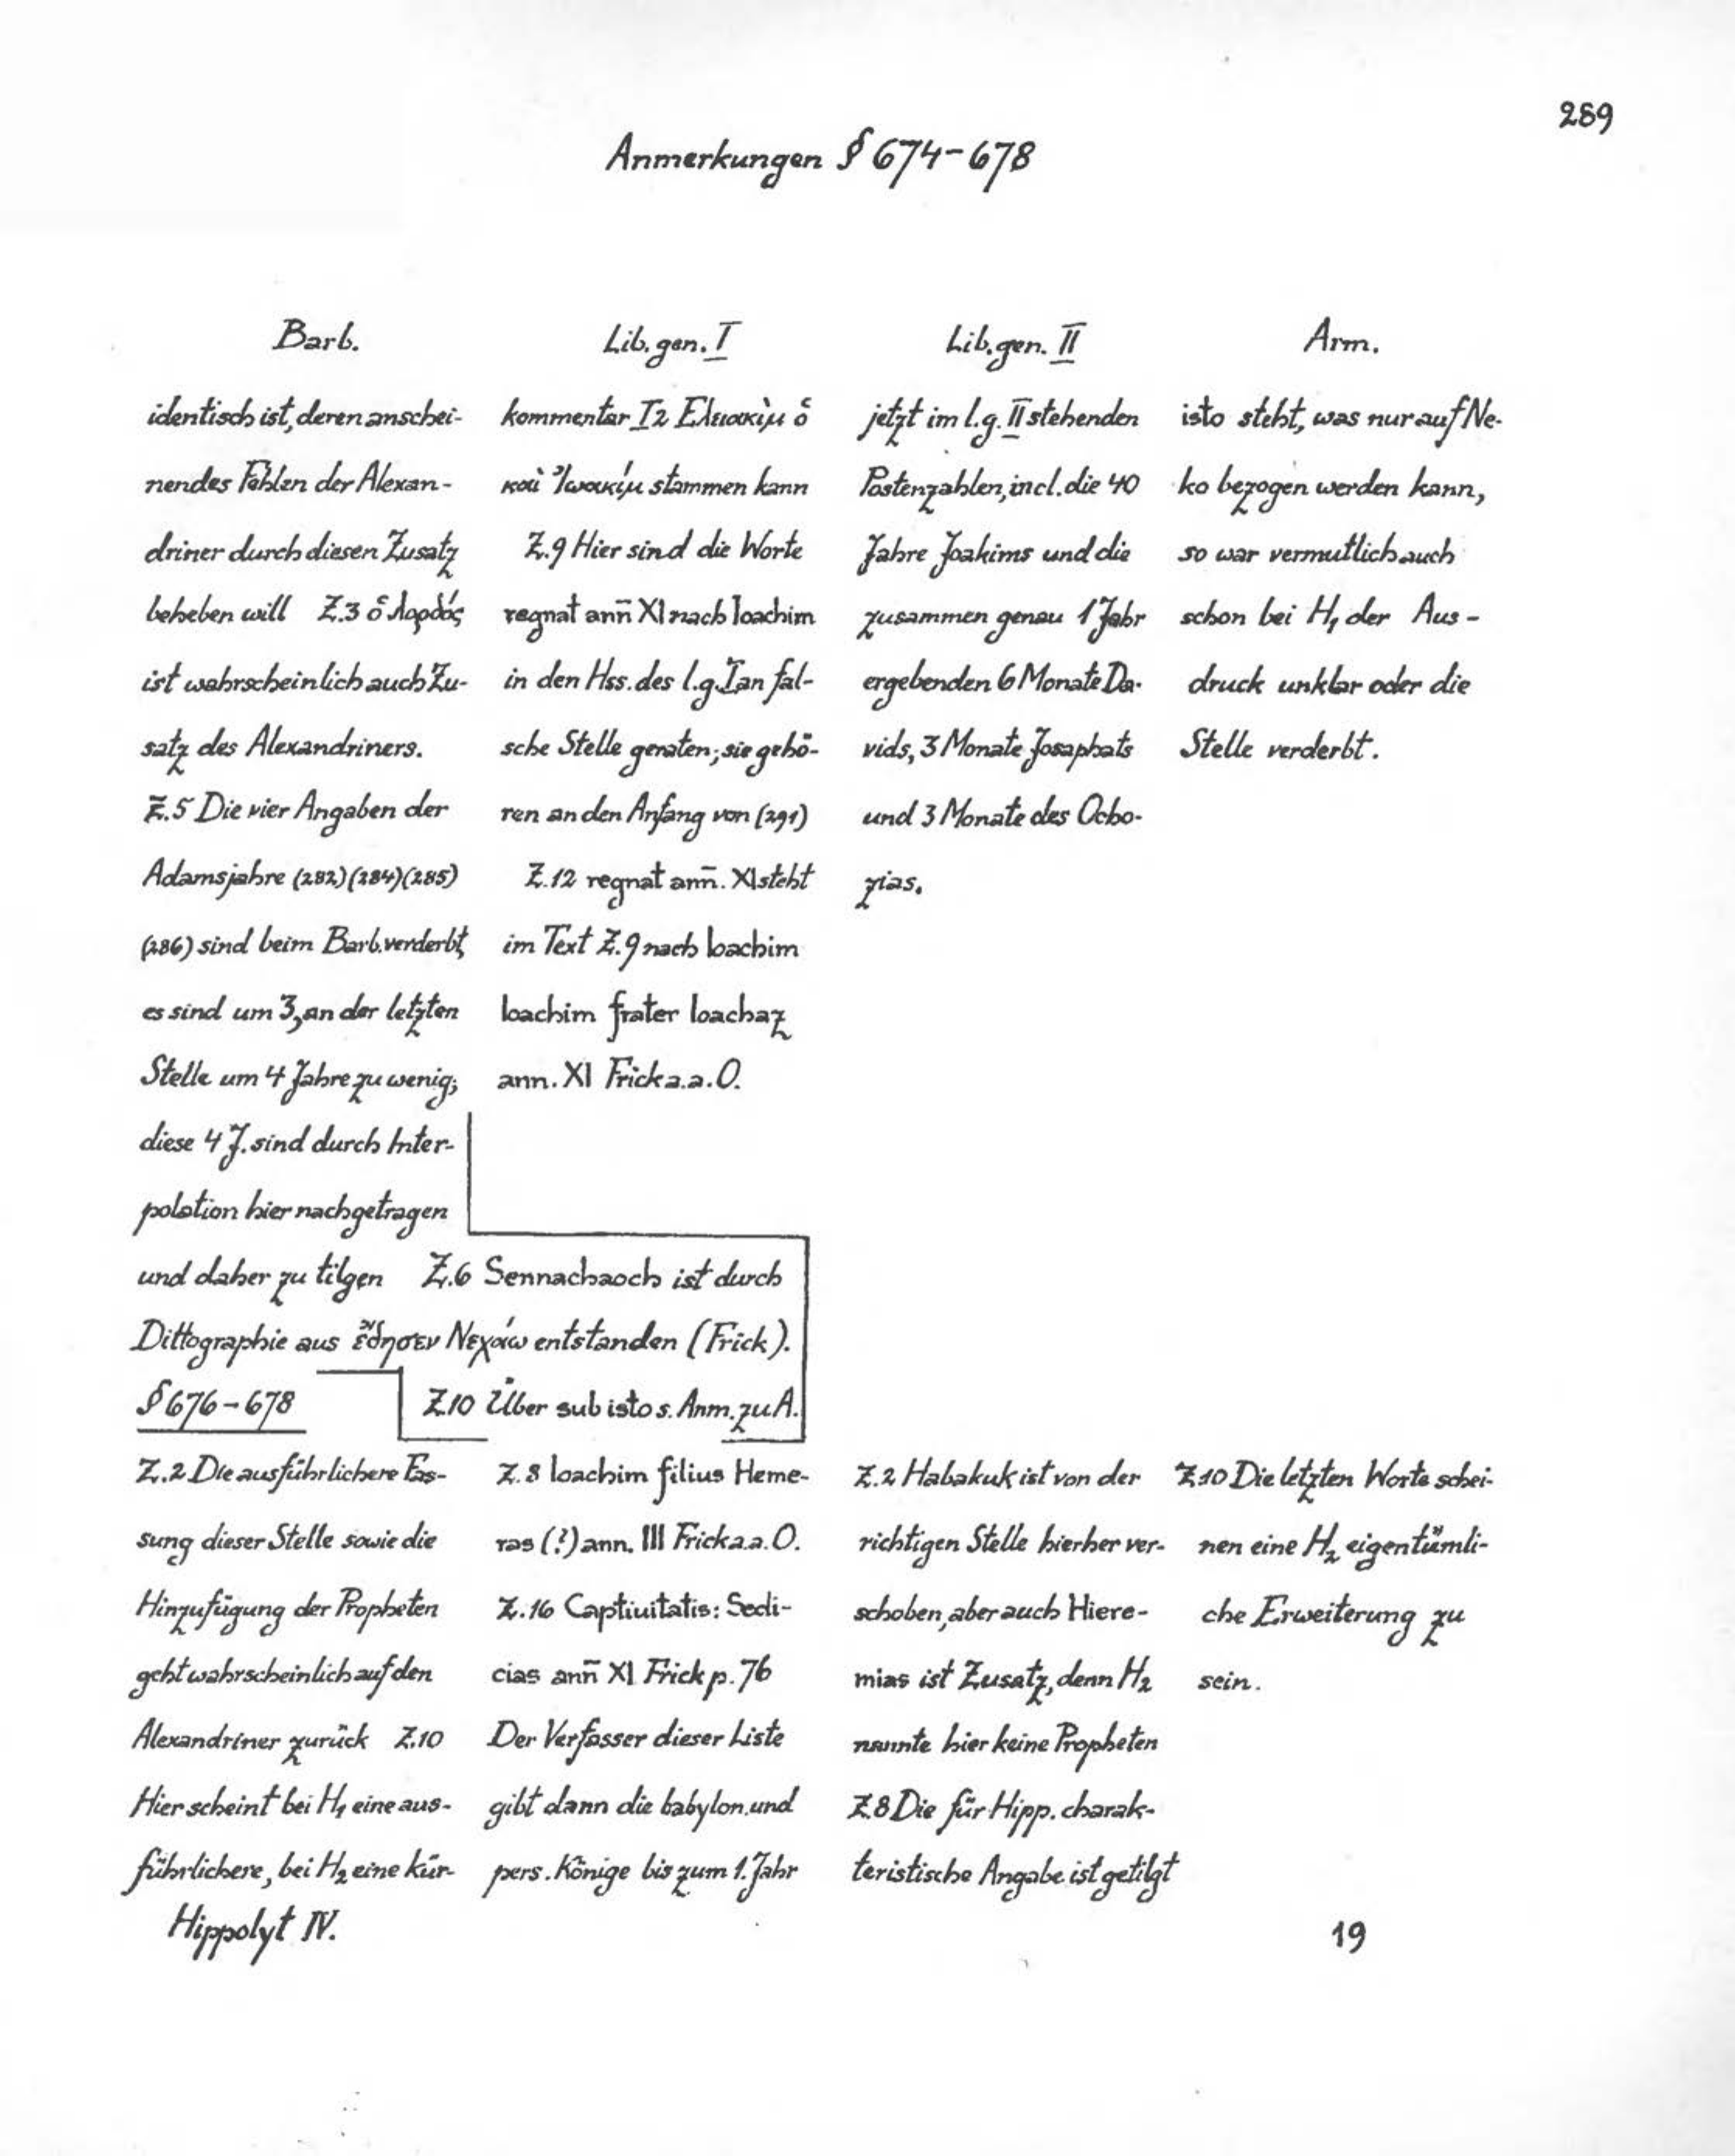 289
Anmerkungen § 674-678
Barb.
identisch ist, deren anschei-
nendes Fehlen der Alexan-
driner durch diesen Zusatz
beheben will Z.3 ὁ Λορδός
ist wahrscheinlich auch Zu-
satz des Alexandriners.
Z.5 Die vier Angaben der
Adamsjahre (282)(284)(285)
(286) sind beim Barb. verderbt,
es sind um 3, an der letzten
Stelle um 4 Jahre zu wenig;
diese 4 J. sind durch Inter-
polation hier nachgetragen
und daher zu tilgen Z.6 Sennachaoch ist durch
Dittographie aus ἔδησεν Νεχάω entstanden (Frick).
Z.10 Über sub isto s. Anm. zu A.
Lib. gen. I
kommentar I2 Ελιακὶμ ὁ
καὶ Ἰωακίμ stammen kann
Z.9 Hier sind die Worte
regnat ann̄ XI nach Ioachim
in den Hss. des l.g. I an fal-
sche Stelle geraten; sie gehö-
ren an den Anfang von (291)
Z.12 regnat ann̄. XI steht
im Text Z.9 nach Ioachim
Ioachim frater Ioachaz
ann. XI Frick a.a.O.
Lib. gen. II
jetzt im l.g. II stehenden
Postenzahlen, incl. die 40
Jahre Joakims und die
zusammen genau 1 Jahr
ergebenden 6 Monate Da-
vids, 3 Monate Josaphats
und 3 Monate des Ocho-
zias.
Arm.
isto steht, was nur auf Ne-
ko bezogen werden kann,
so war vermutlich auch
schon bei H₁ der Aus-
druck unklar oder die
Stelle verderbt.
§ 676-678
Z.2 Die ausführlichere Fas-
sung dieser Stelle sowie die
Hinzufügung der Propheten
geht wahrscheinlich auf den
Alexandriner zurück Z.10
Hier scheint bei H₁ eine aus-
führlichere, bei H₂ eine kür-
Z.8 Ioachim filius Heme-
ras (?) ann. III Frick a.a.O.
Z.16 Captiuitatis: Sedi-
cias ann̄ XI Frick p. 76
Der Verfasser dieser Liste
gibt dann die babylon. und
pers. Könige bis zum 1. Jahr
Z.2 Habakuk ist von der
richtigen Stelle hierher ver-
schoben, aber auch Hiere-
mias ist Zusatz, denn H₂
nannte hier keine Propheten
Z.8 Die für Hipp. charak-
teristische Angabe ist getilgt
Z.10 Die letzten Worte schei-
nen eine H₂ eigentümli-
che Erweiterung zu
sein.
Hippolyt IV.
19